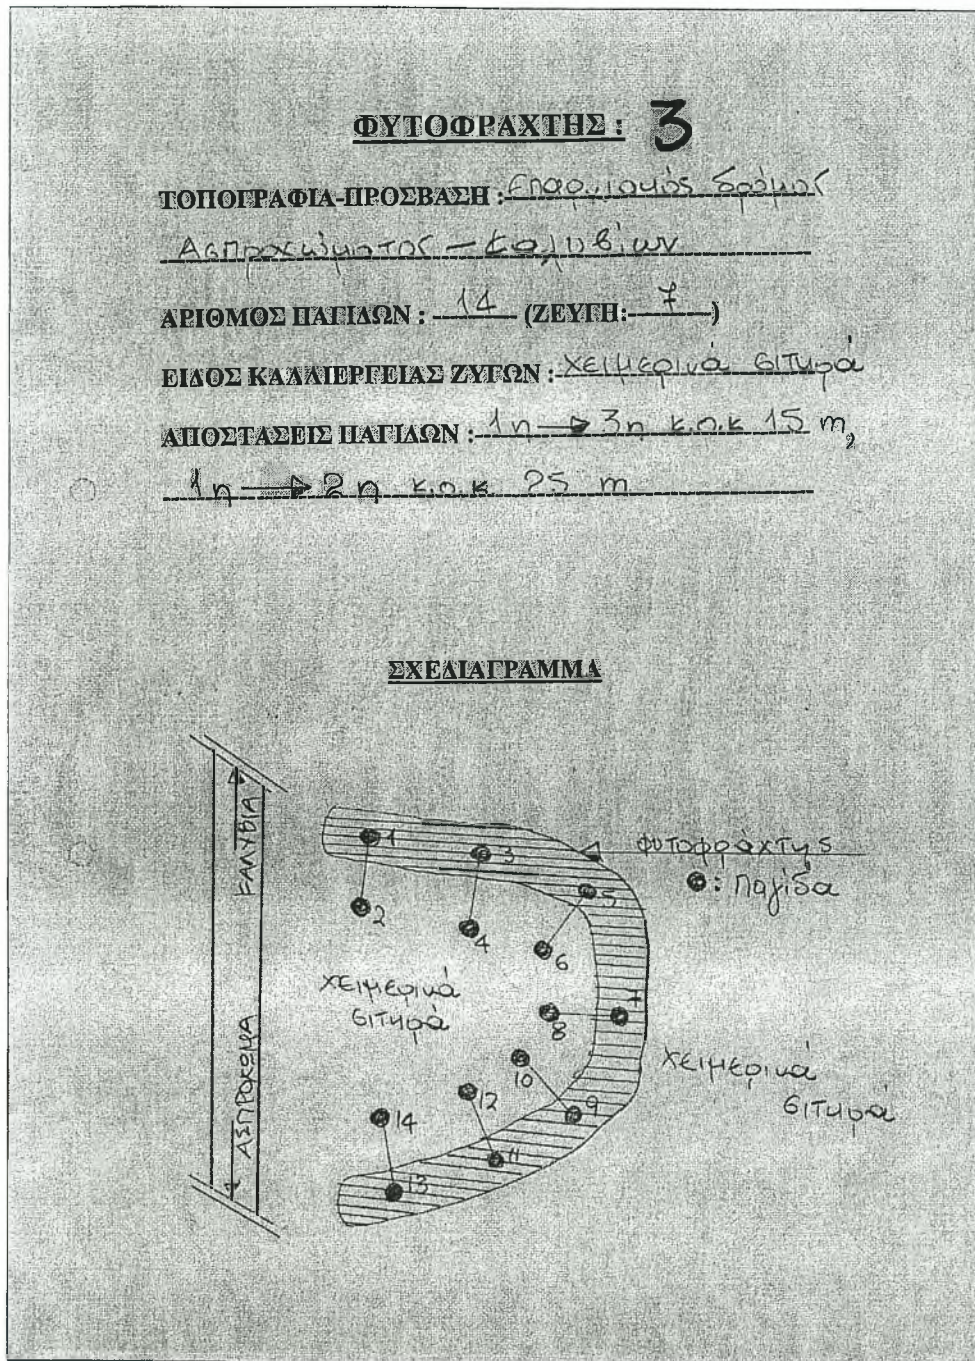 ΦΥΤΟΦΡΑΧΤΗΣ : 3
ΤΟΠΟΓΡΑΦΙΑ-ΠΡΟΣΒΑΣΗ : Επαρχιακός δρόμος
Ασπροχώματος – Καλυβίων
ΑΡΙΘΜΟΣ ΠΑΓΙΔΩΝ : 14 (ΖΕΥΓΗ: 7)
ΕΙΔΟΣ ΚΑΛΛΙΕΡΓΕΙΑΣ ΖΥΓΩΝ : χειμερινά σιτηρά
ΑΠΟΣΤΑΣΕΙΣ ΠΑΓΙΔΩΝ : 1η → 3η κ.ο.κ 15 m,
1η → 2η κ.ο.κ 25 m
ΣΧΕΔΙΑΓΡΑΜΜΑ
ΚΑΛΥΒΙΑ
ΑΣΠΡΟΧΩΜΑ
1
3
φυτοφράχτης
: παγίδα
5
2
4
6
χειμερινά
σιτηρά
8
7
χειμερινά
σιτηρά
10
12
9
14
11
13